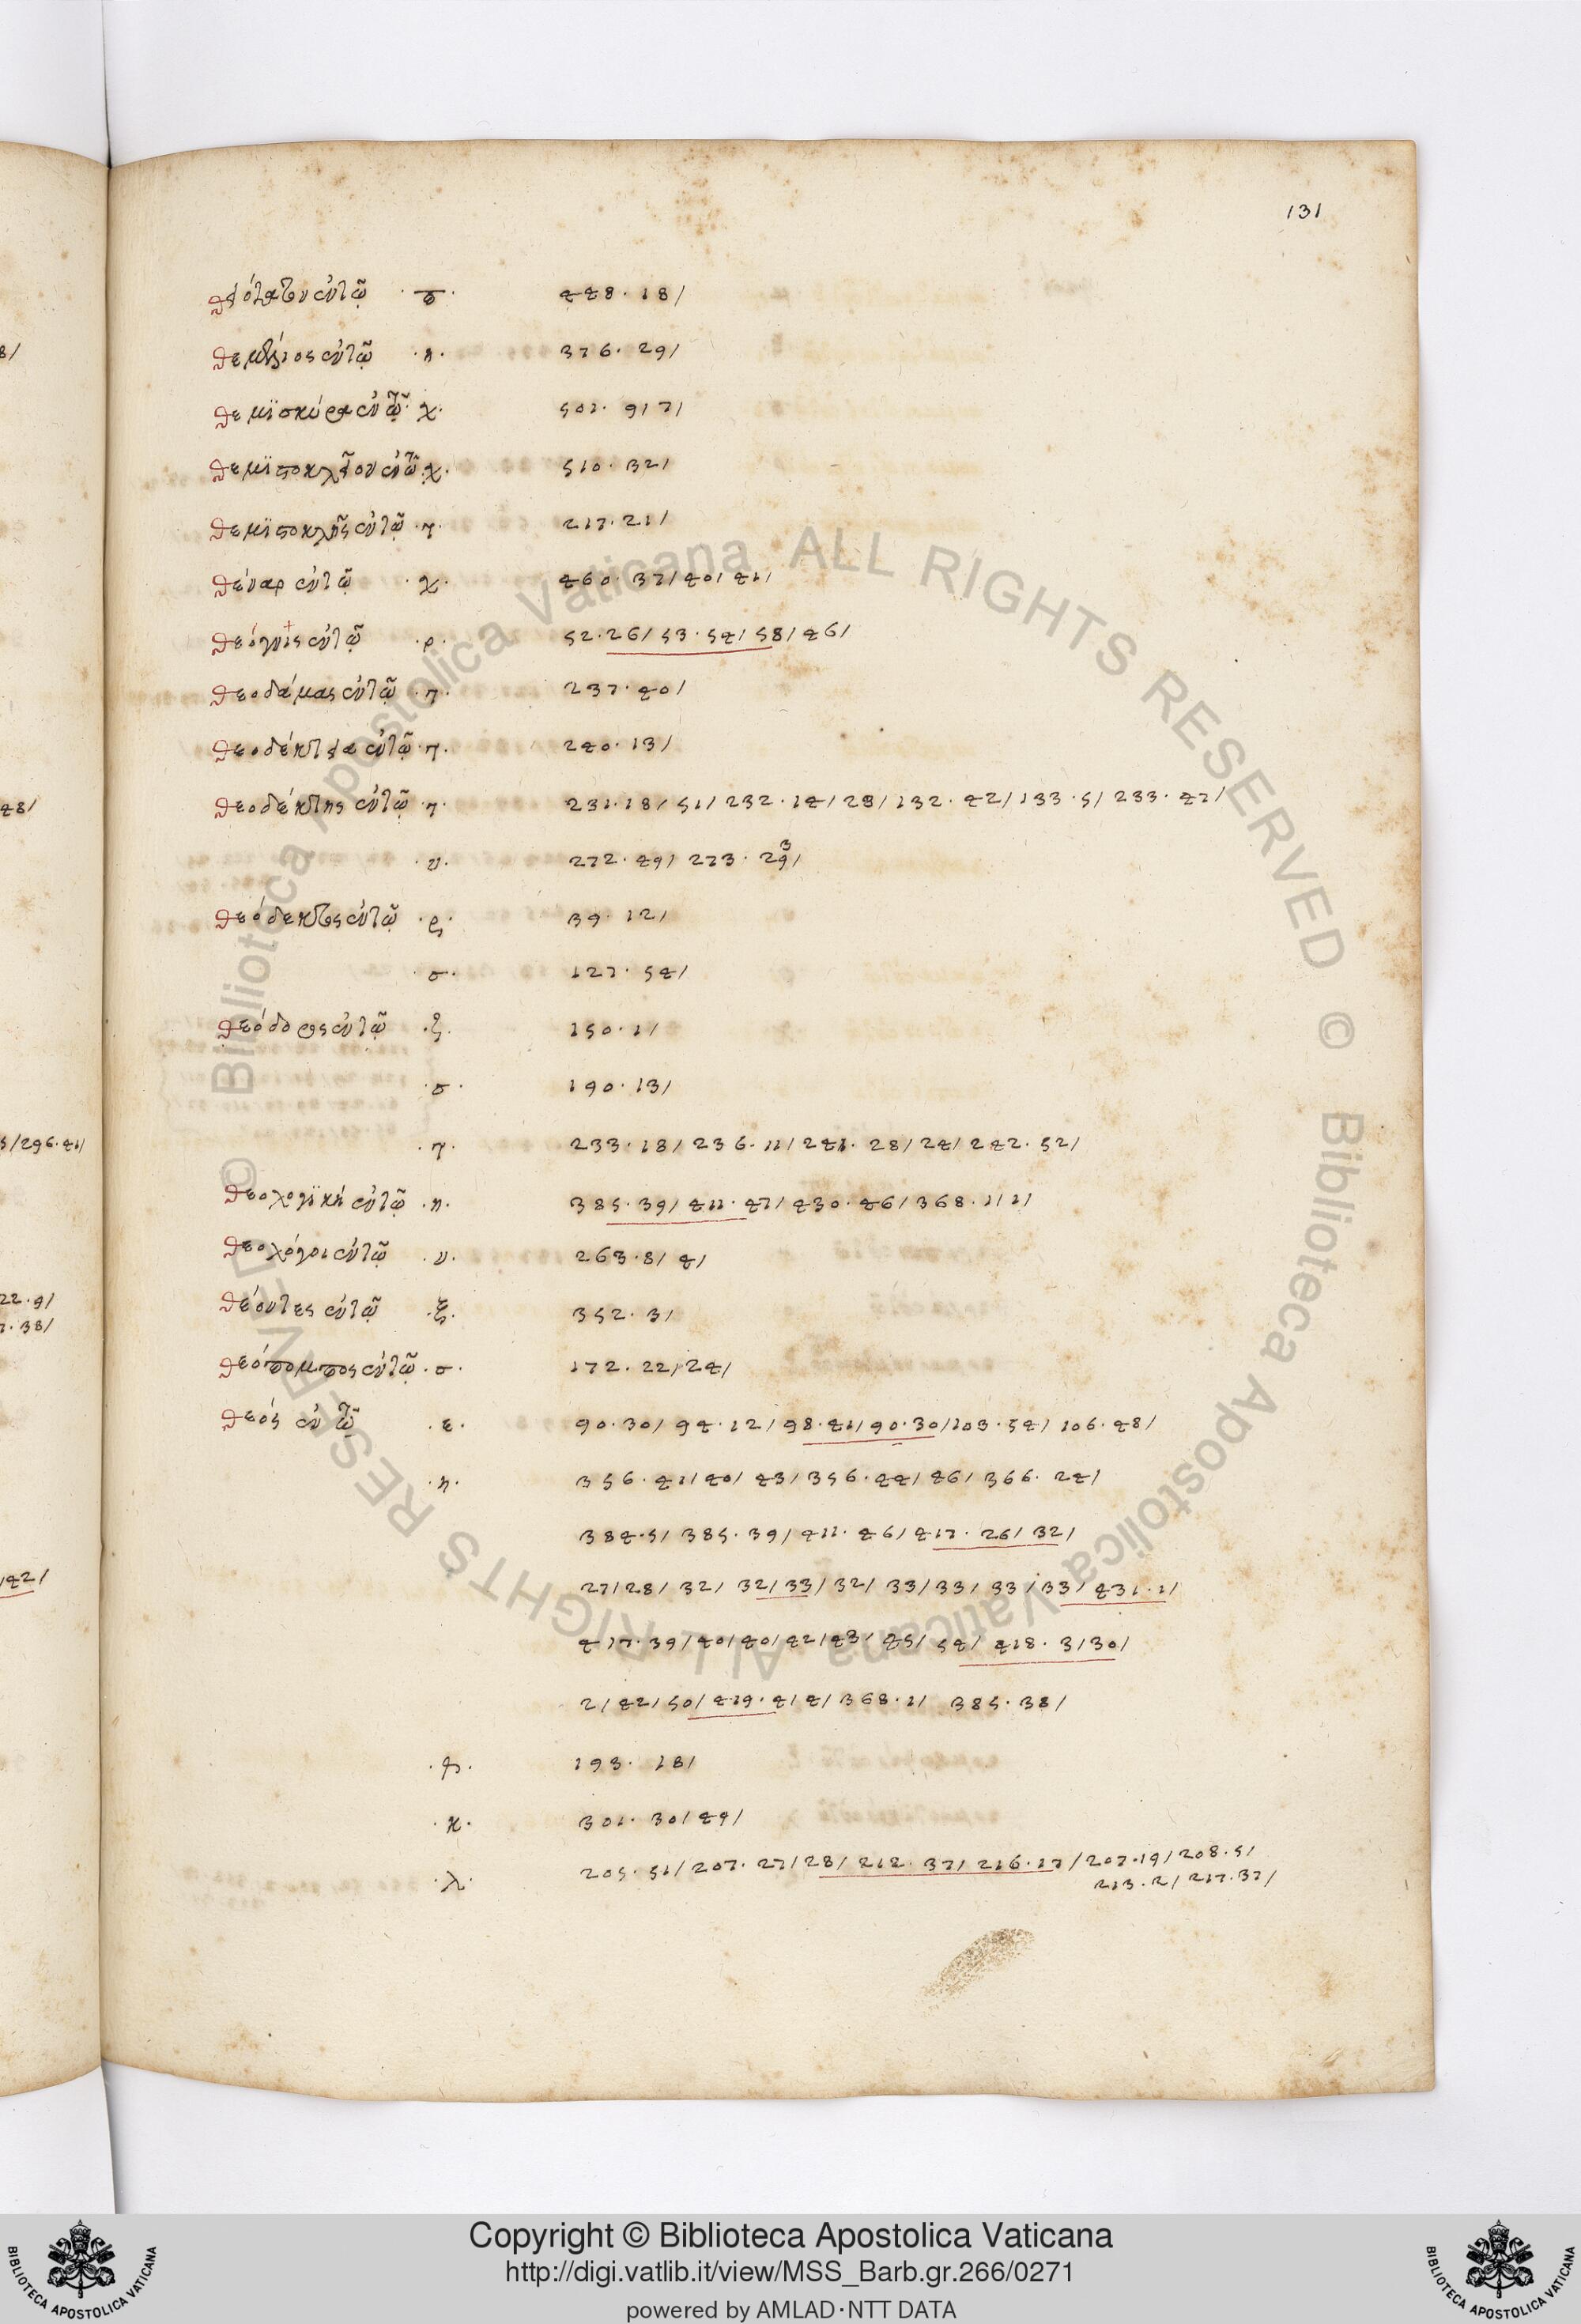 131
θειότατον ἐν τῷ · π · 448 · 18/
θεμίσιος ἐν τῷ · η · 376 · 29/
θεμϊσκύρα ἐν τῷ · χ · 501 · 9/7/
θεμϊστοκλεῖου ἐν τῷ · χ · 510 · 32/
θεμϊστοκλῆς ἐν τῷ · τ · 217 · 21/
θέναρ ἐν τῷ · χ · 460 · 37/40/41/
θεόγνις ἐν τῷ · ρ · 52 · 26/53 · 54/58/46/
θεοδάμας ἐν τῷ · τ · 237 · 40/
θεοδέκτεια ἐν τῷ · τ · 240 · 13/
θεοδέκτης ἐν τῷ · τ · 231 · 18/51/232 · 14/28/132 · 42/133 · 5/233 · 47/
· υ · 272 · 49/273 · 29/
θεόδεκτος ἐν τῷ · ρ · 39 · 12/
· σ · 127 · 54/
θεόδορος ἐν τῷ · ζ · 150 · 1/
· σ · 190 · 13/
· τ · 233 · 18/236 · 11/241 · 28/24/242 · 52/
θεολογϊκή ἐν τῷ · η · 385 · 39/411 · 47/430 · 46/368 · 1/1/
θεολόγοι ἐν τῷ · υ · 263 · 8/4/
θέοντες ἐν τῷ · ξ · 352 · 3/
θεόπομπος ἐν τῷ · σ · 172 · 22/24/
θεός ἐν τῷ · ε · 90 · 30/94 · 12/98 · 41/90 · 30/103 · 54/106 · 48/
· η · 356 · 41/40/43/356 · 44/46/366 · 24/
384 · 5/385 · 39/411 · 46/417 · 26/32/
27/28/32/32/33/32/33/33/33/33/431 · 1/
417 · 39/40/40/42/43/45/54/418 · 3/30/
2/42/50/419 · 4/4/368 · 1/385 · 38/
193 · 18/
· κ · 301 · 30/44/
· λ · 205 · 51/207 · 27/28/212 · 37/216 · 17/207 · 19/208 · 5/
213 · 2/217 · 37/
Copyright © Biblioteca Apostolica Vaticana
http://digi.vatlib.it/view/MSS_Barb.gr.266/0271
powered by AMLAD·NTT DATA